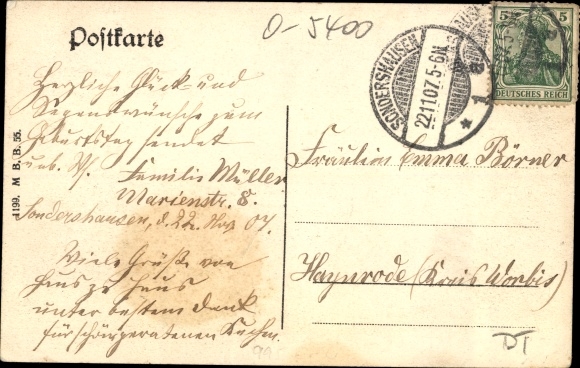 O-5400
Postkarte
SONDERSHAUSEN
22.11.07. 5-6N.
* 1 a
5 5
DEUTSCHES REICH
Herzliche Glück- und
Segenswünsche zum
Geburtstag sendet
Familie Müller
Marienstr. 8.
Sondershausen, d. 22. Nov. 07.
Viele Grüße von
Haus zu Haus
unter bestem Dank
für schön geratenen Kuchen.
1199. M. B. B. 55.
Fräulein Emma Börner
Haynrode (Kreis Worbis)
DT